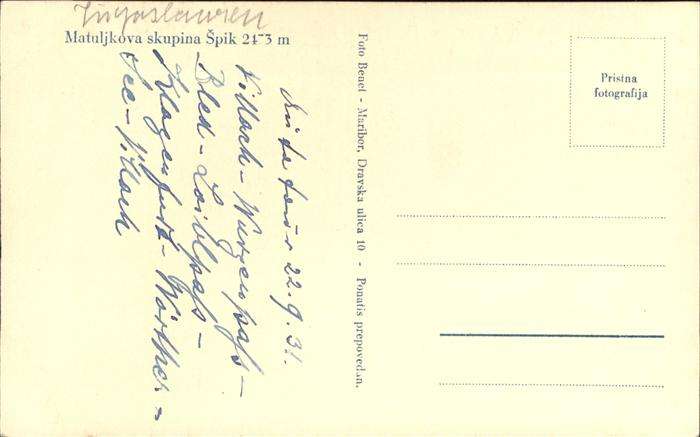 Jugoslawien
Matuljkova skupina Špik 2473 m
22.9.31.
Villach – Wurzenpaß –
Bled – Loiblpaß –
Klagenfurt – Wörther =
See – Villach
Foto Benet - Maribor, Dravska ulica 10 - Ponatis prepovedan.
Pristna
fotografija